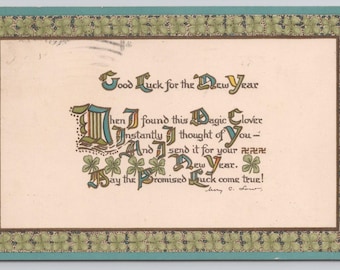 Good Luck for the New Year
When I found this Magic Clover
Instantly I thought of You—
And I send it for your
New Year.
May the Promised Luck come true!
Mary C. Low